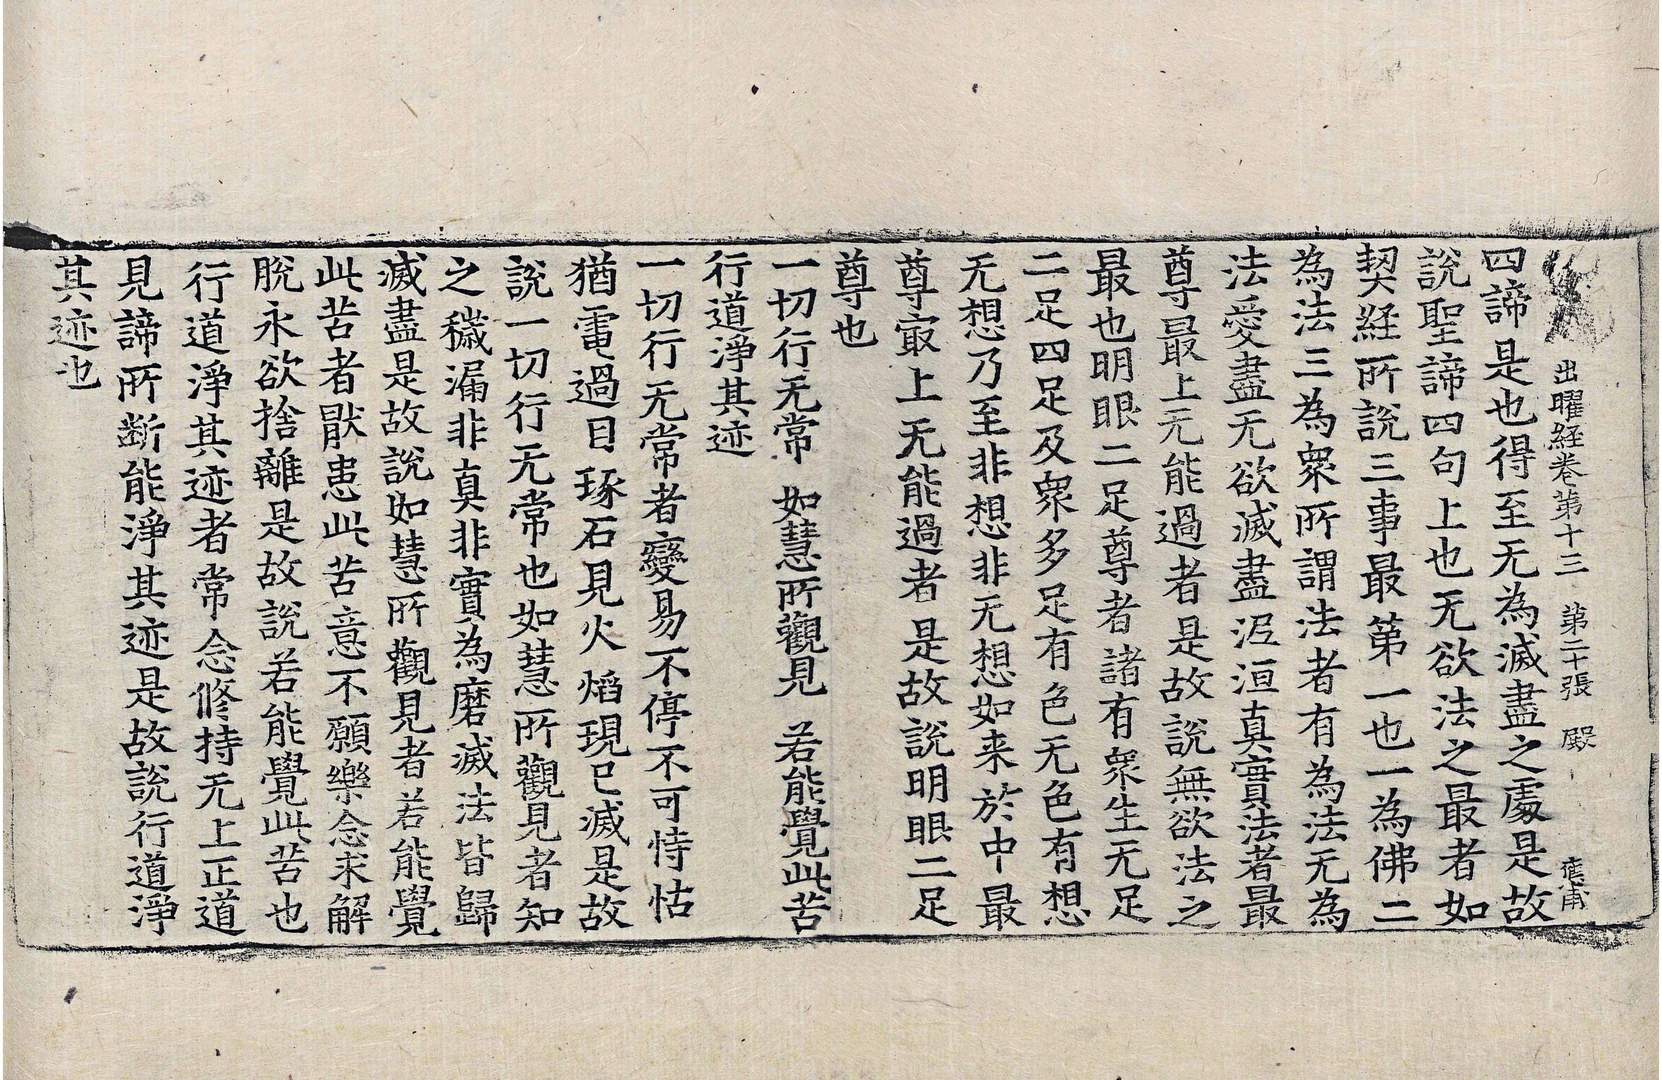 出曜経卷第十三 第二十張 殿
四諦是也得至无為滅盡之處是故
說聖諦四句上也无欲法之最者如
契経所說三事最第一也一為佛二
為法三為衆所謂法者有為法无為
法愛盡无欲滅盡泥洹真實法者最
尊最上无能過者是故說無欲法之
最也明眼二足尊者諸有衆生无足
二足四足及衆多足有色无色有想
无想乃至非想非无想如来於中最
尊㝡上无能過者是故說明眼二足
尊也
一切行无常 如慧所觀見 若能覺此苦
行道淨其迹
一切行无常者變易不停不可恃怙
猶電過目琢石見火焰現已滅是故
說一切行无常也如慧所觀見者知
之穢漏非真非實為磨滅法皆歸
滅盡是故說如慧所觀見者若能覺
此苦者猒患此苦意不願樂念求解
脫永欲捨離是故說若能覺此苦也
行道淨其迹者常念修持无上正道
見諦所斷能淨其迹是故說行道淨
其迹也